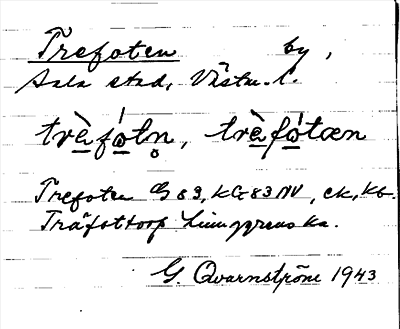 Trefoten by,
Sala stad, Västm. l.
trὲ̱fó̱tn̥, trὲ̱fó̱tæn
Trefoten GS 83, KG 83 NV, ek, kb.
Träfottorp Ljunggrens ka.
G. Qvarnström 1943